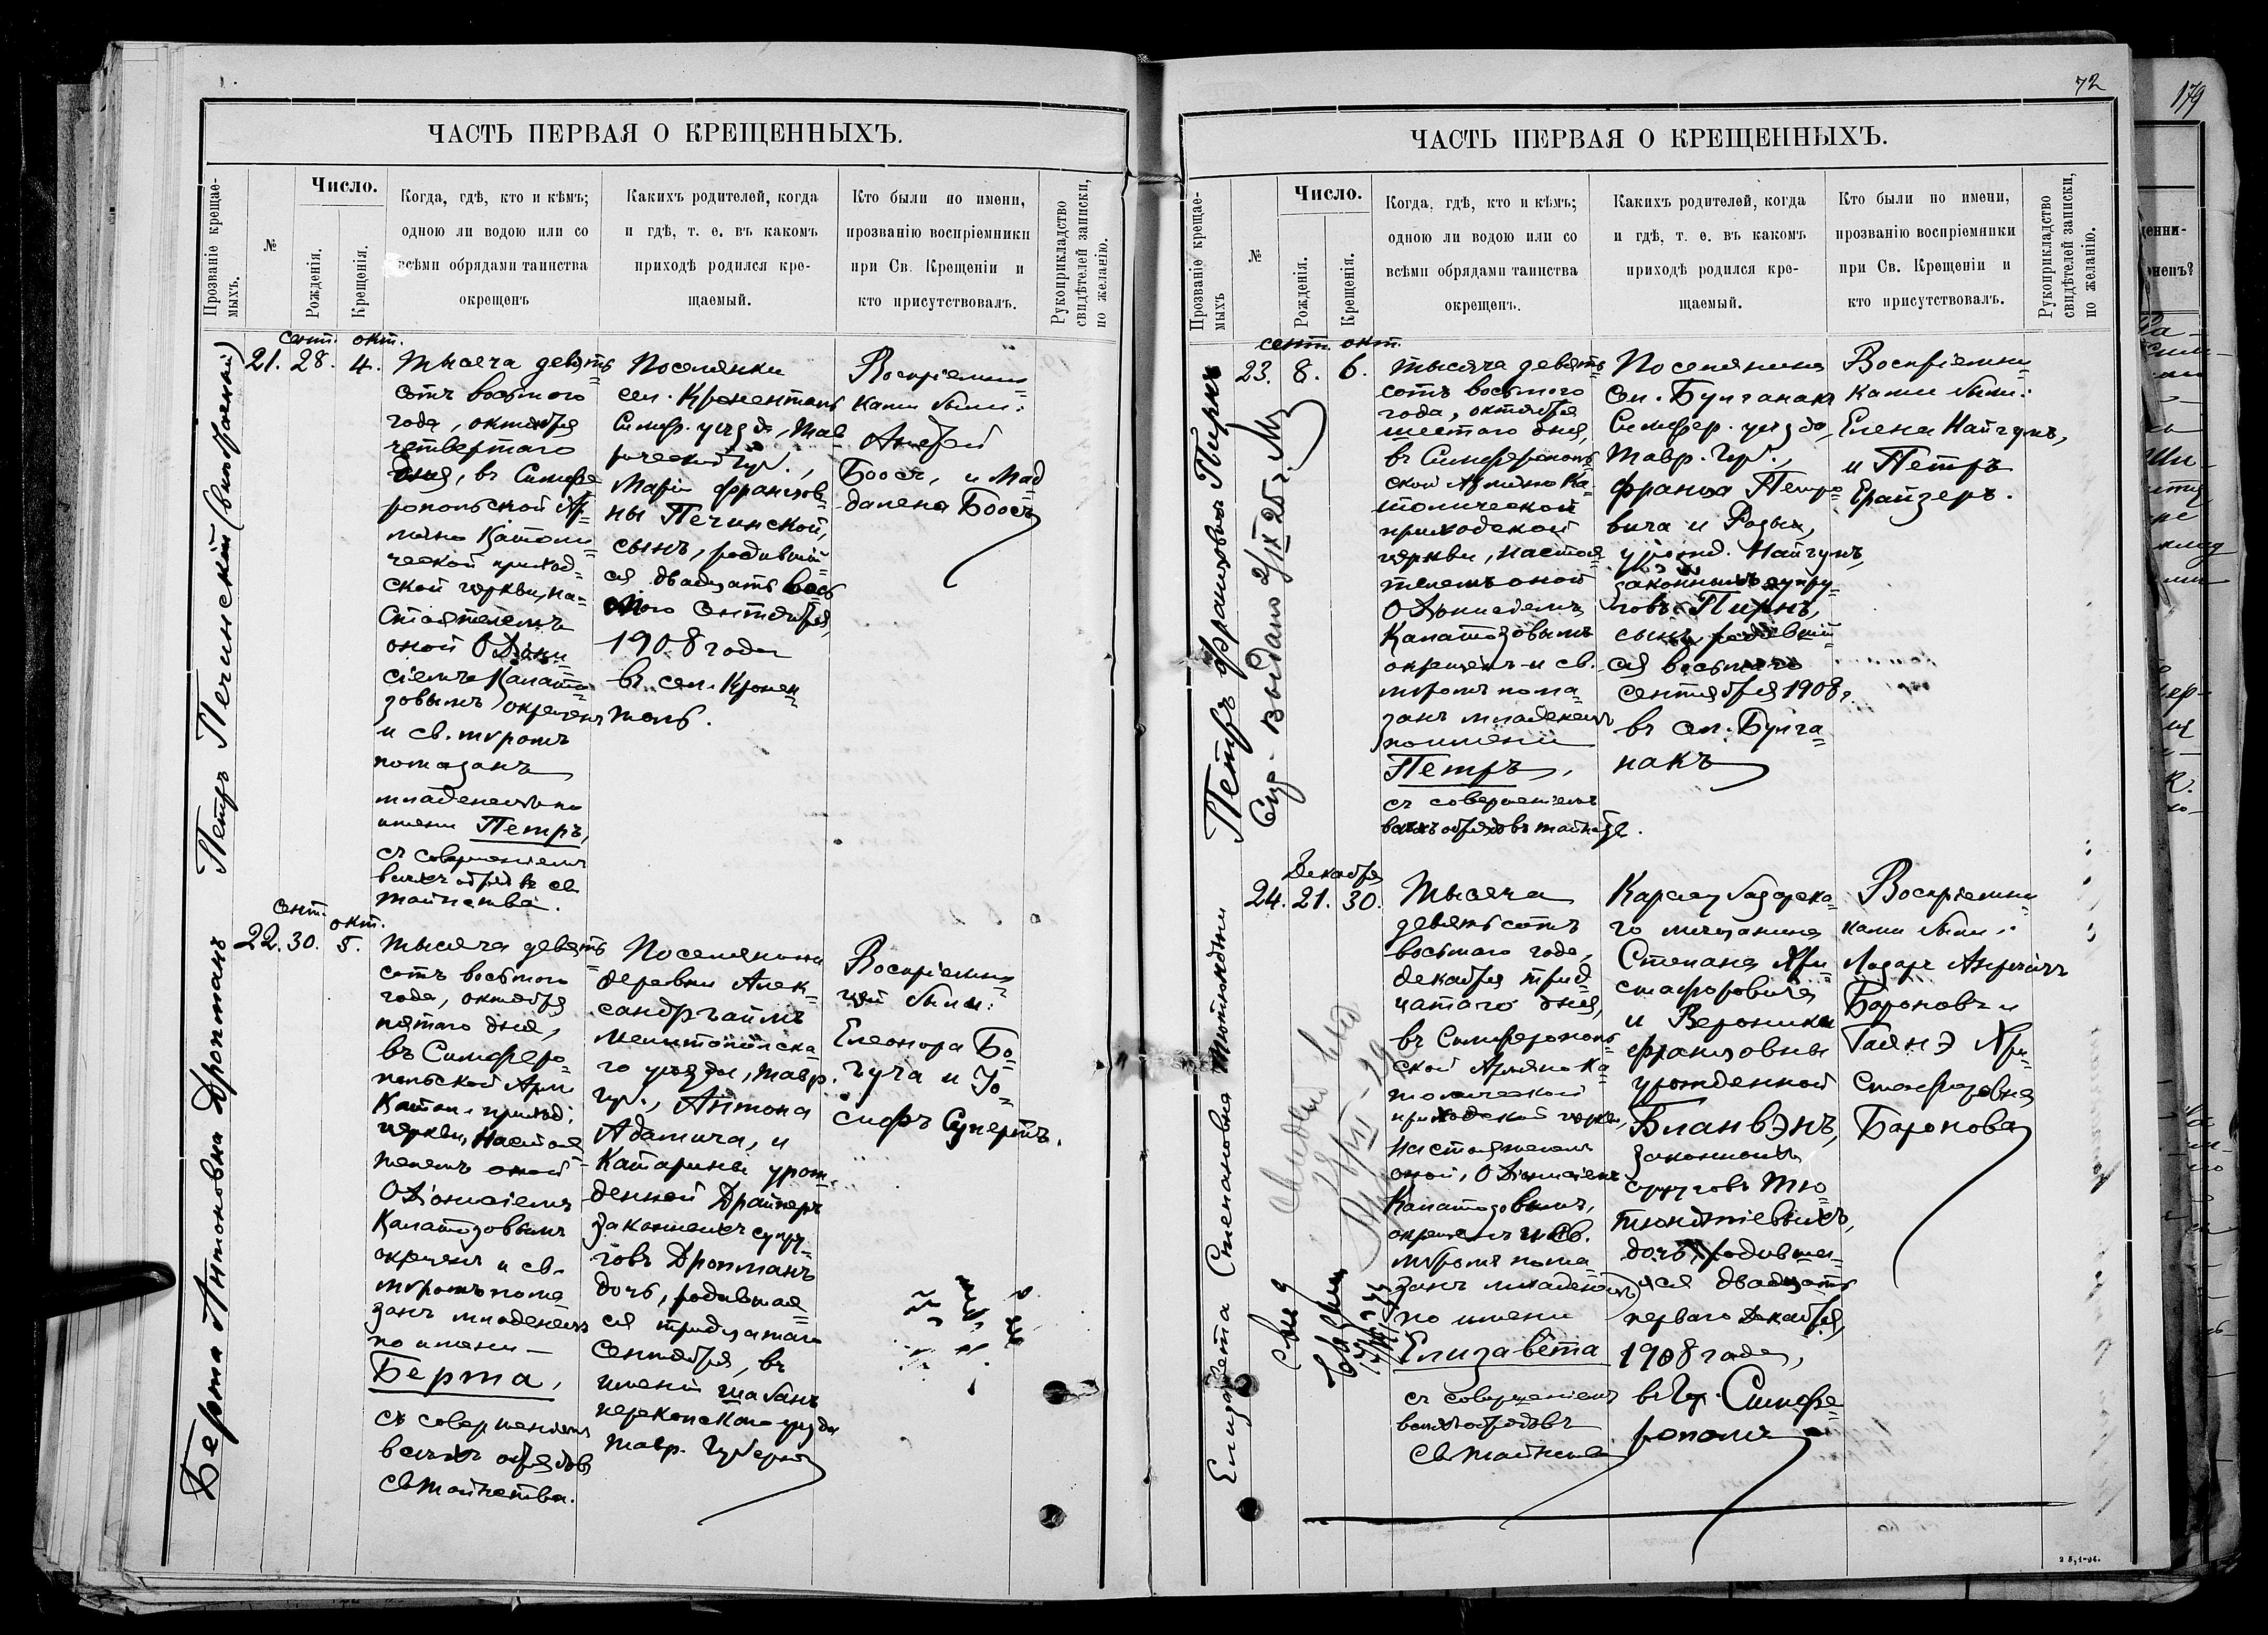 ЧАСТЬ ПЕРВАЯ О КРЕЩЕННЫХЪ.
Прозваніе крещае-
мыхъ.
№
Число.
Рожденія.
Крещенія.
Когда, гдѣ, кто и кѣмъ;
одною ли водою или со
всѣми обрядами таинства
окрещенъ
Какихъ родителей, когда
и гдѣ, т. е. въ какомъ
приходѣ родился кре-
щаемый.
Кто были по имени,
прозванію воспріемники
при Св. Крещеніи и
кто присутствовалъ.
Рукоприкладство
свидѣтелей записки,
по желанію.
Петръ Печинскій
21.
сент.
28.
окт.
4.
Тысяча девять
сотъ восьмого
года, октября
четвертаго
дня, въ Симфе
ропольской Ар=
мяно Католи=
ческой приход=
ской церкви, на=
стоятелемъ
оной О. Діони=
сіемъ Калата=
зовымъ окрещенъ
и св. мѵромъ
помазанъ
младенецъ по
имени Петръ,
съ совершеніемъ
всѣхъ обрядовъ св.
таинства.
Поселянки
сел. Кронентал
Симф. уѣзда, Тав
рической губ.,
Маріи Францов=
ны Печинской,
сынъ, родившій=
ся двадцать вось
мого сентября,
1908 года
въ сел. Кронен=
таль.
Воспріемни=
ками были:
Андрей
Боосъ, и Маг
далена Боосъ
Берта Антоновна Дротманъ
22.
сент.
30.
окт.
5.
Тысяча девять
сотъ восьмого
года, октября
пятаго дня,
въ Симферо=
польской Арм.
Катол. приход.
церкви, Настоя
телемъ оной
О. Діонисіемъ
Калатозовымъ
окрещенъ и св.
мѵромъ пома
занъ младенецъ
по имени —
Берта,
съ совершеніемъ
всѣхъ обрядовъ
св. таинства.
Поселянина
деревни Алек=
сандргаймъ
Мелитопольска=
го уѣзда, Тавр.
губ., Антона
Адамича, и
Катарины урож=
денной Драйперъ
законныхъ супру=
говъ Дротманъ
дочь, родившая=
ся тридцатаго
сентября, въ
имени Шабанъ
перекопскаго уѣзда
Тавр. Губерніи
Воспріемни=
цей были:
Елеонора Бо=
гуча и Іо=
сифъ Супертъ.
72
179
ЧАСТЬ ПЕРВАЯ О КРЕЩЕННЫХЪ.
Прозваніе крещае-
мыхъ
№
Число.
Рожденія.
Крещенія.
Когда, гдѣ, кто и кѣмъ;
одною ли водою или со
всѣми обрядами таинства
окрещенъ.
Какихъ родителей, когда
и гдѣ, т. е. въ какомъ
приходѣ родился кре-
щаемый.
Кто были по имени,
прозванію воспріемники
при Св. Крещеніи и
кто присутствовалъ.
Рукоприкладство
свидѣтелей записки,
по желанію.
Петръ Францовичъ Пиркъ
выдано 2/IX 25 г.
23.
сент.
8.
окт.
6.
Тысяча девять
сотъ восьмого
года, октября
шестого дня,
въ Симферополь
ской Армяно Ка=
толической
приходской
церкви, настоя=
телемъ оной
О. Діонисіемъ
Калатозовымъ
окрещенъ и св.
мѵромъ пома=
занъ младенецъ
по имени
Петръ,
съ совершеніемъ
всѣхъ обрядовъ таинства.
Поселянина
сел. Булганак
Симфер. уѣзда,
Тавр. Губ.,
Франца Петро=
вича и Розы,
урожд. Найгумъ,
законныхъ супру=
говъ Пиркъ,
сынъ, родившій
ся восьмого
сентября 1908 г.
въ сел. Булга=
накъ
Воспріемни=
ками были:
Елена Найгумъ,
и Петръ
Грайзеръ.
Елизавета Степановна
24.
Декабря
21.
30.
Тысяча
девятьсотъ
восьмого года,
декабря трид
цатаго дня,
въ Симферополь=
ской Армяно Ка=
толической
приходской церкви,
настоятелемъ
оной, О. Діонисіемъ
Калатозовымъ,
окрещенъ и св.
мѵромъ пома=
занъ младенецъ
по имени
Елизавета
съ совершеніемъ
всѣхъ обрядовъ
св. таинства
Карасубазарска=
го мѣщанина
Степана Хри=
стофоровича
и Вероники
Францовны
урожденной
Бланвэнъ,
законныхъ
супруговъ Тю=
тюнджіевыхъ,
дочь, родивша=
яся двадцать
перваго Декабря,
1908 года,
въ г. Симфе=
рополь
Воспріемни=
ками были:
Лазарь
Бароновъ и
Гаянэ Хри=
стофоровна
Баронова